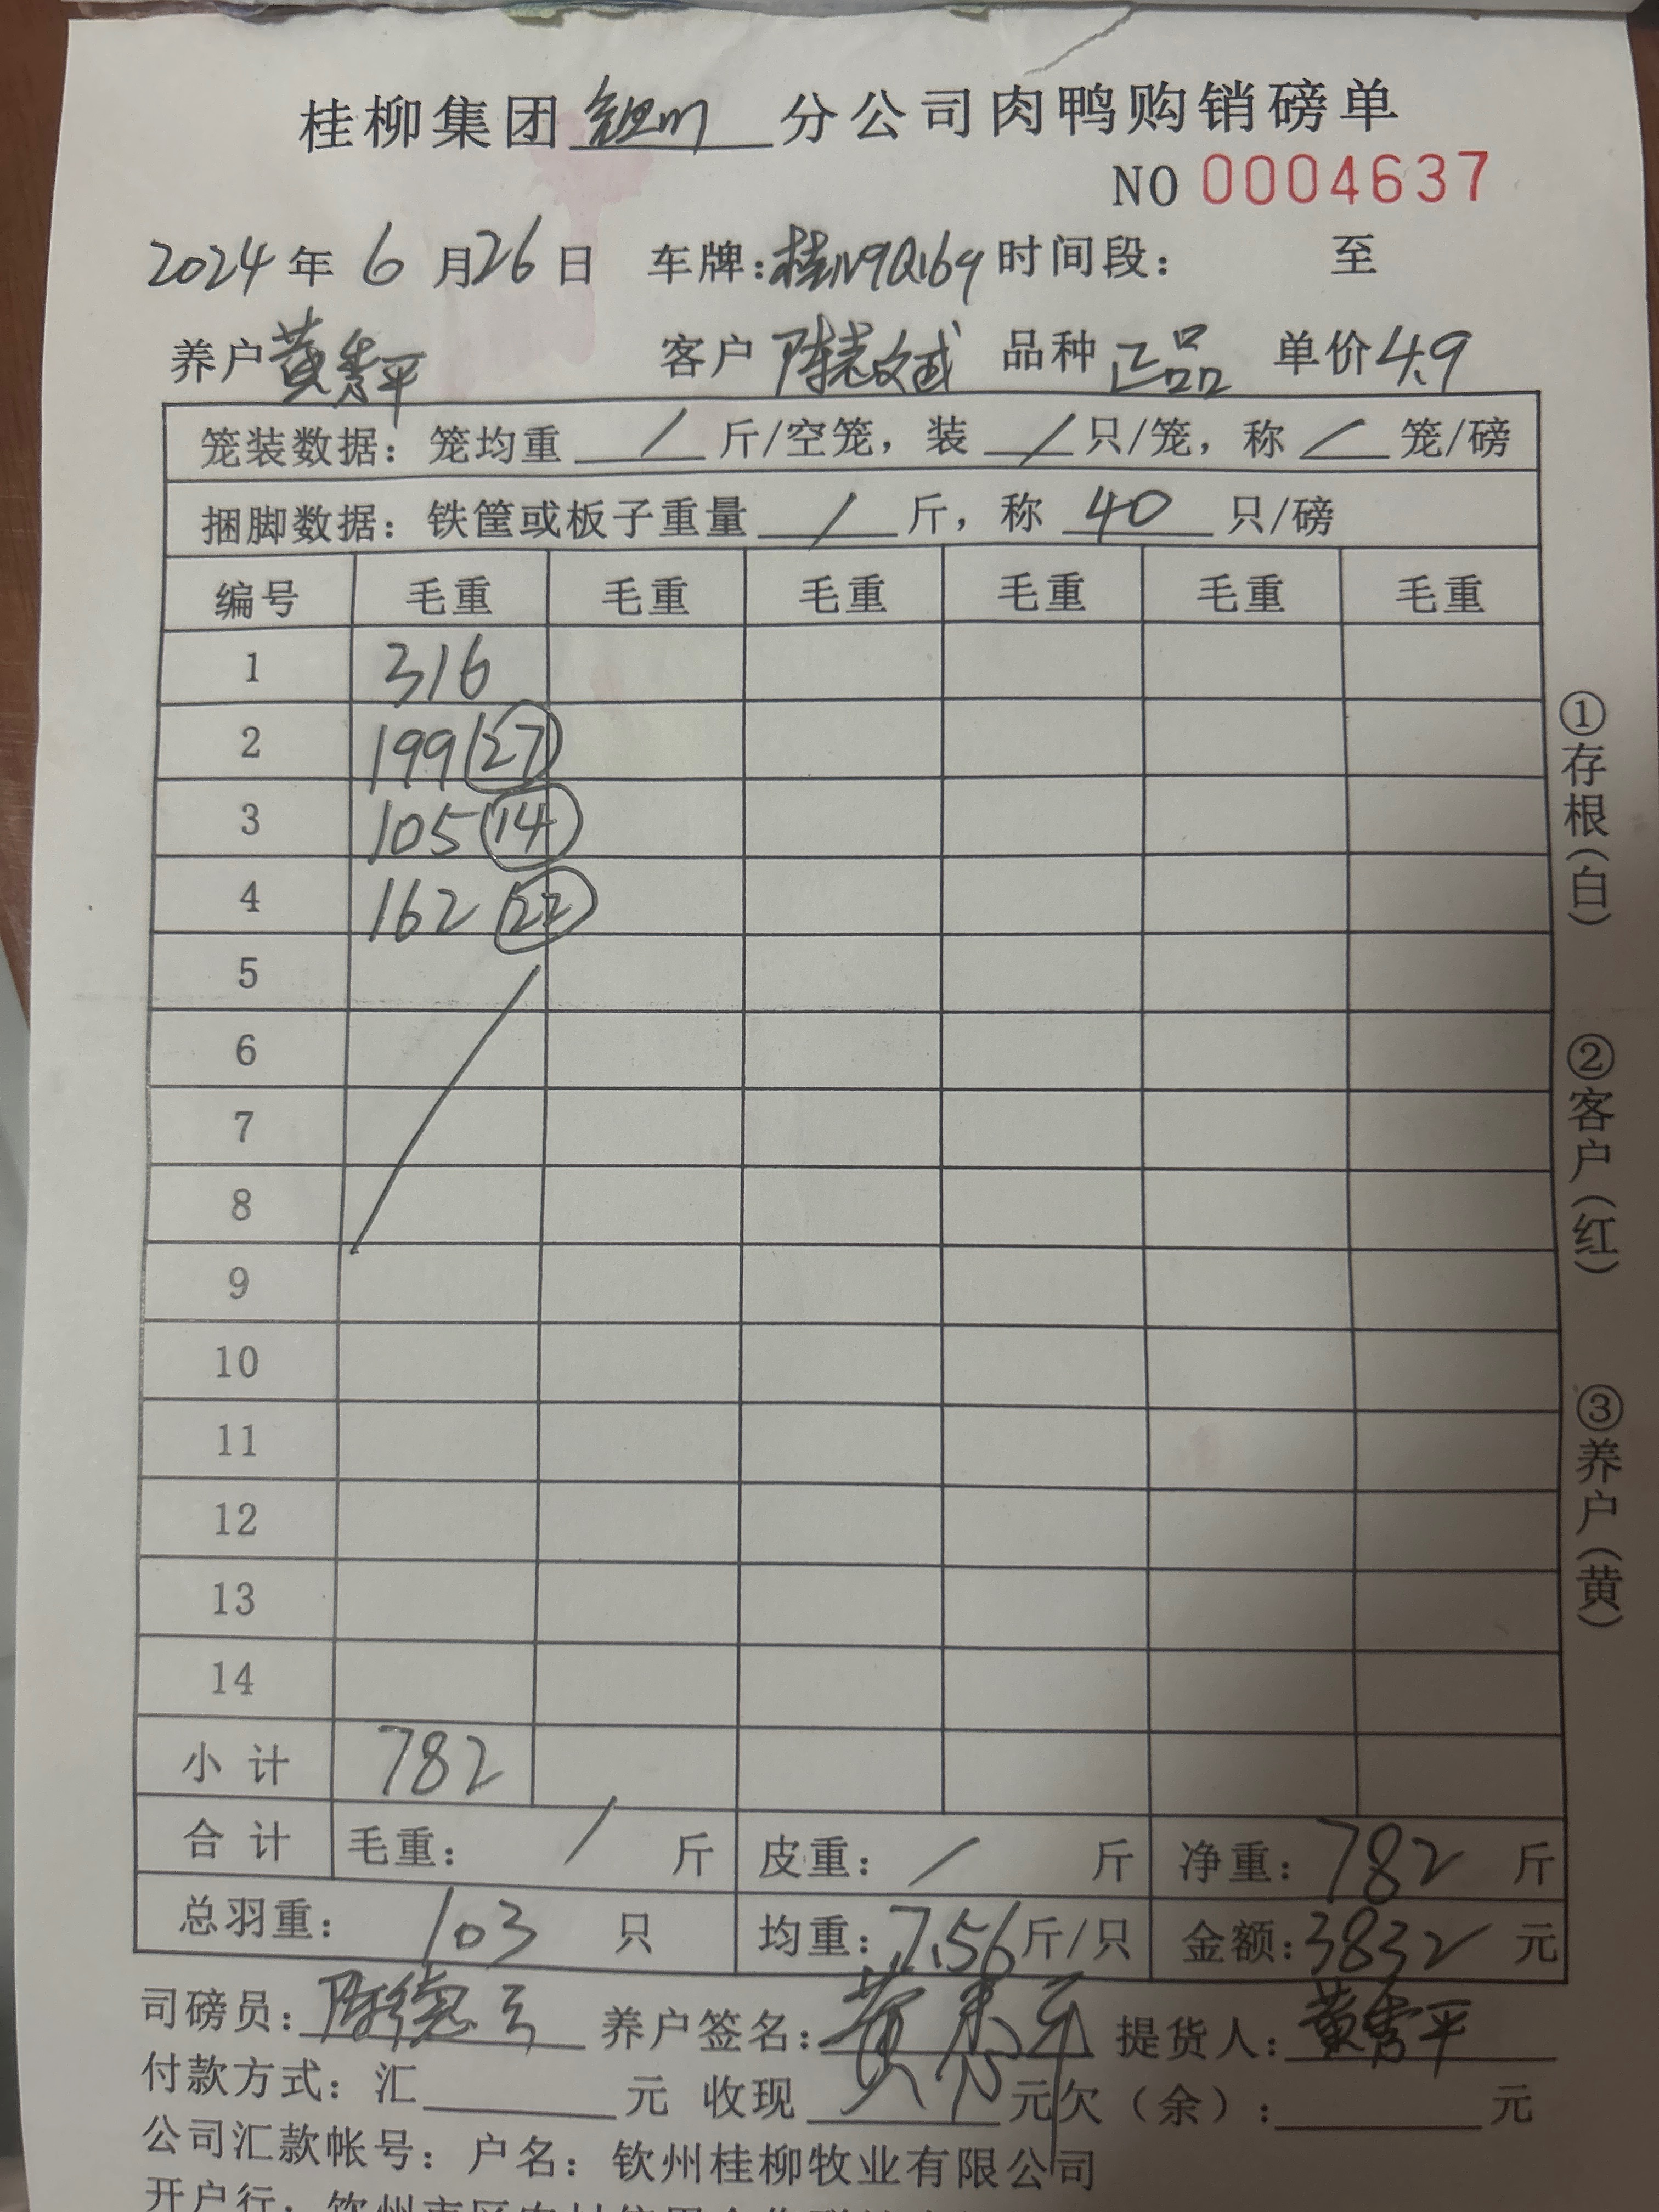 桂柳集团 分公司肉鸭购销磅单
NO 0004637
2024年 6月26日 车牌: 时间段: 至
养户 黄秀平 客户 陈志斌 品种 正品 单价 4.9
笼装数据: 笼均重 / 斤/空笼, 装 / 只/笼, 称 / 笼/磅
捆脚数据: 铁筐或板子重量 / 斤, 称 40 只/磅
编号 毛重 毛重 毛重 毛重 毛重 毛重
1 316
2 199 27
3 105 14
4 162 22
5
6
7
8
9
10
11
12
13
14
小计 782
合计 毛重: / 斤 皮重: / 斤 净重: 782 斤
总羽重: 103 只 均重: 7.56 斤/只 金额: 3832 元
司磅员: 养户签名: 黄秀平 提货人: 黄秀平
付款方式: 汇 元 收现 元 欠(余): 元
公司汇款帐号: 户名: 钦州桂柳牧业有限公司
开户行:
①存根(白)
②客户(红)
③养户(黄)